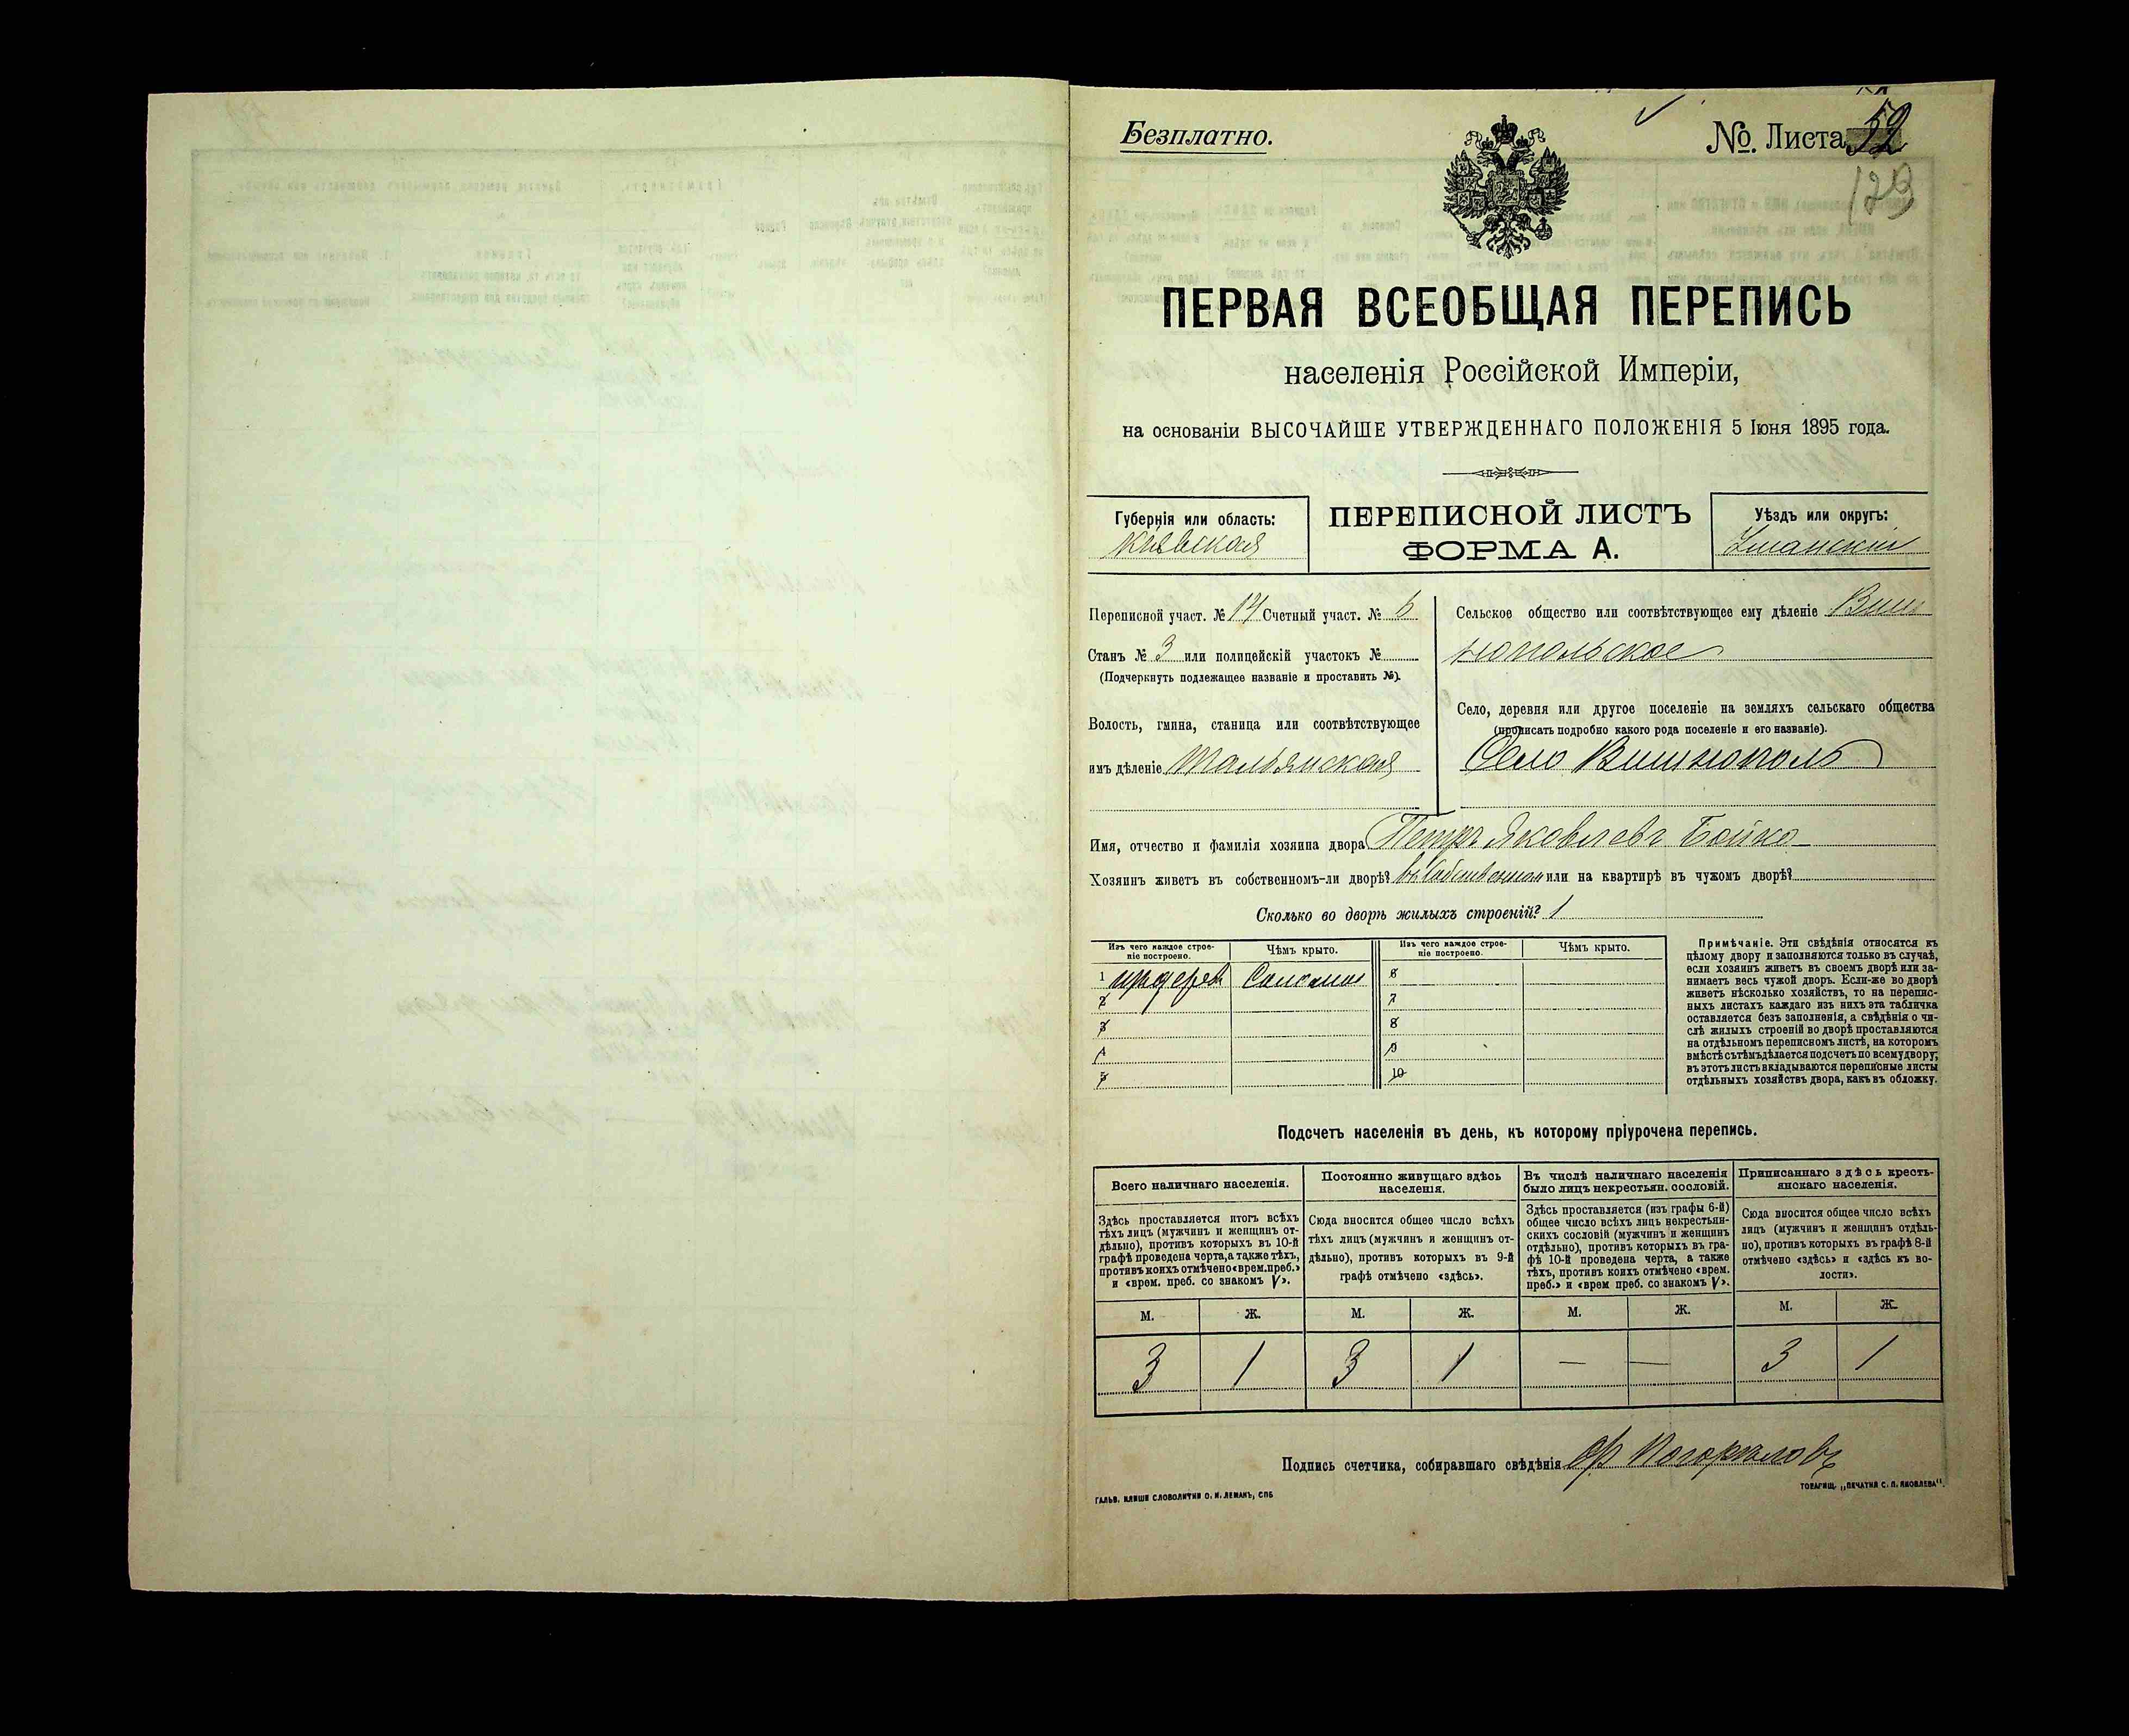 Безплатно.
№ Листа 52
129
ПЕРВАЯ ВСЕОБЩАЯ ПЕРЕПИСЬ
населенія Россійской Имперіи,
на основаніи ВЫСОЧАЙШЕ УТВЕРЖДЕННАГО ПОЛОЖЕНІЯ 5 Іюня 1895 года.
Губернія или область:
Кіевская
ПЕРЕПИСНОЙ ЛИСТЪ
ФОРМА А.
Уѣздъ или округъ:
Уманскій
Переписной участ. № 14 Счетный участ. № 6
Станъ № 3 или полицейскій участокъ №
(Подчеркнуть подлежащее названіе и проставить №).
Волость, гмина, станица или соотвѣтствующее
имъ дѣленіе Тальянская
Сельское общество или соотвѣтствующее ему дѣленіе Виш
нопольское
Село, деревня или другое поселеніе на земляхъ сельскаго общества
(прописать подробно какого рода поселеніе и его названіе).
Село Вишнополь
Имя, отчество и фамилія хозяина двора Петръ Яковлевъ Бойко
Хозяинъ живетъ въ собственномъ-ли дворѣ? въ собственном или на квартирѣ въ чужомъ дворѣ?
Сколько во дворѣ жилыхъ строеній? 1
Изъ чего каждое строе-
ніе построено.
Чѣмъ крыто.
Изъ чего каждое строе-
ніе построено.
Чѣмъ крыто.
1 изъ дерева Соломы 6
2 7
3 8
4 9
5 10
Примѣчаніе. Эти свѣдѣнія относятся къ
цѣлому двору и заполняются только въ случаѣ,
если хозяинъ живетъ въ своемъ дворѣ или за-
нимаетъ весь чужой дворъ. Если-же во дворѣ
живетъ нѣсколько хозяйствъ, то на перепис-
ныхъ листахъ каждаго изъ нихъ эта табличка
оставляется безъ заполненія, а свѣдѣнія о чи-
слѣ жилыхъ строеній во дворѣ проставляются
на отдѣльномъ переписномъ листѣ, на которомъ
вмѣстѣ съ тѣмъ дѣлается подсчетъ по всему двору;
въ этотъ листъ вкладываются переписные листы
отдѣльныхъ хозяйствъ двора, какъ въ обложку.
Подсчетъ населенія въ день, къ которому пріурочена перепись.
Всего наличнаго населенія.
Здѣсь проставляется итогъ всѣхъ
тѣхъ лицъ (мужчинъ и женщинъ от-
дѣльно), противъ которыхъ въ 10-й
графѣ проведена черта, а также тѣхъ,
противъ коихъ отмѣчено «врем. преб.»
и «врем. преб. со знакомъ V».
Постоянно живущаго здѣсь
населенія.
Сюда вносится общее число всѣхъ
тѣхъ лицъ (мужчинъ и женщинъ от-
дѣльно), противъ которыхъ въ 9-й
графѣ отмѣчено «здѣсь».
Въ числѣ наличнаго населенія
было лицъ некрестьян. сословій.
Здѣсь проставляется (изъ графы 6-й)
общее число всѣхъ лицъ некрестьян-
скихъ сословій (мужчинъ и женщинъ
отдѣльно), противъ которыхъ въ гра-
фѣ 10-й проведена черта, а также
тѣхъ, противъ коихъ отмѣчено «врем.
преб.» и «врем преб. со знакомъ V».
Приписаннаго здѣсь кресть-
янскаго населенія.
Сюда вносится общее число всѣхъ
лицъ (мужчинъ и женщинъ отдѣль-
но), противъ которыхъ въ графѣ 8-й
отмѣчено «здѣсь» и «здѣсь къ во-
лости».
М. Ж. М. Ж. М. Ж. М. Ж.
3 1 3 1 — — 3 1
Подпись счетчика, собиравшаго свѣдѣнія Погорѣловъ
ГАЛЬВ. КЛИШЕ СЛОВОЛИТНИ О. И. ЛЕМАНЪ, СПБ
ТОВАРИЩ. „ПЕЧАТНЯ С. П. ЯКОВЛЕВА".